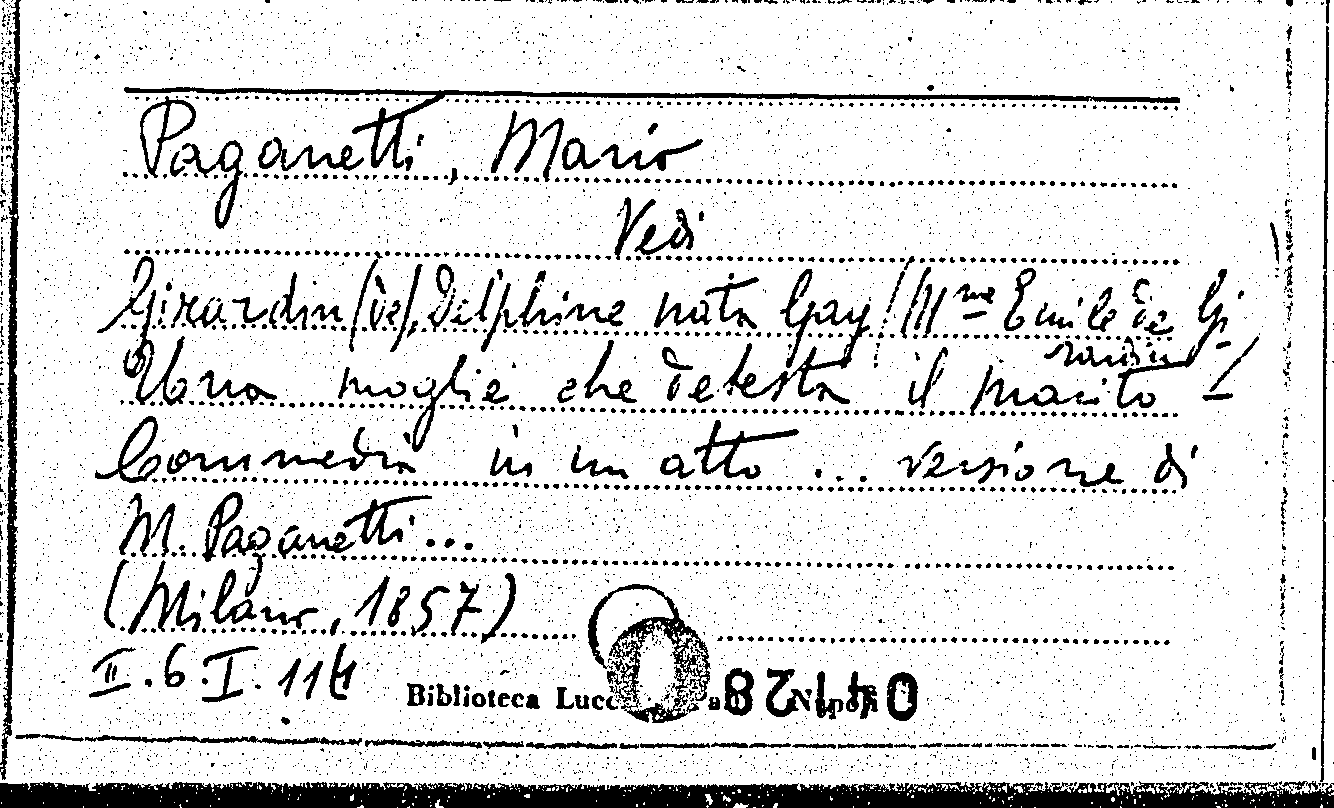 Paganetti, Mario
Vedi
Girardin (de), Delphine nata Gay / Mme Emile de Gi-
rardin /
Una moglie che detesta il marito -
Commedia in un atto ... versione di
M. Paganetti...
(Milano, 1857)
II.6.I.11
Biblioteca Lucc